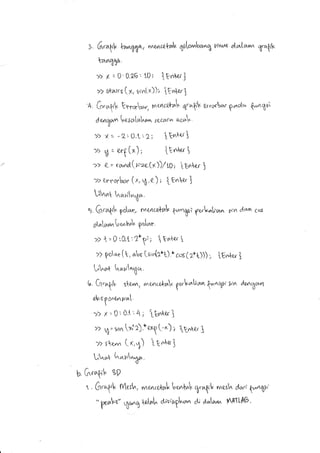 3. Grafik tangga, mencetak gelombang sinus dalam grafik
tangga.
>> x = 0:0.25:10; {Enter}
>> stairs(x, sin(x)); {Enter}
4. Grafik Errorbar, mencetak grafik errorbar pada fungsi
dengan kesalahan secara acak.
>> x = -2:0.1:2; {Enter}
>> y = erf(x); {Enter}
>> e = rand(size(x))/10; {Enter}
>> errorbar(x,y,e); {Enter}
Lihat hasilnya.
5. Grafik polar, mencetak fungsi perkalian sin dan cos
dalam bentuk polar.
>> t = 0:0.1:2*pi; {Enter}
>> polar(t, abs(sin(2*t).*cos(2*t))); {Enter}
Lihat hasilnya.
6. Grafik stem, mencetak perkalian fungsi sin dengan
eksponensial.
>> x = 0:0.1:4; {Enter}
>> y = sin(x.^2).*exp(-x); {Enter}
>> stem(x,y) {Enter}
Lihat hasilnya.
b. Grafik 3D
1. Grafik Mesh, mencetak bentuk grafik mesh dari fungsi
"peaks" yang telah disiapkan di dalam MATLAB.